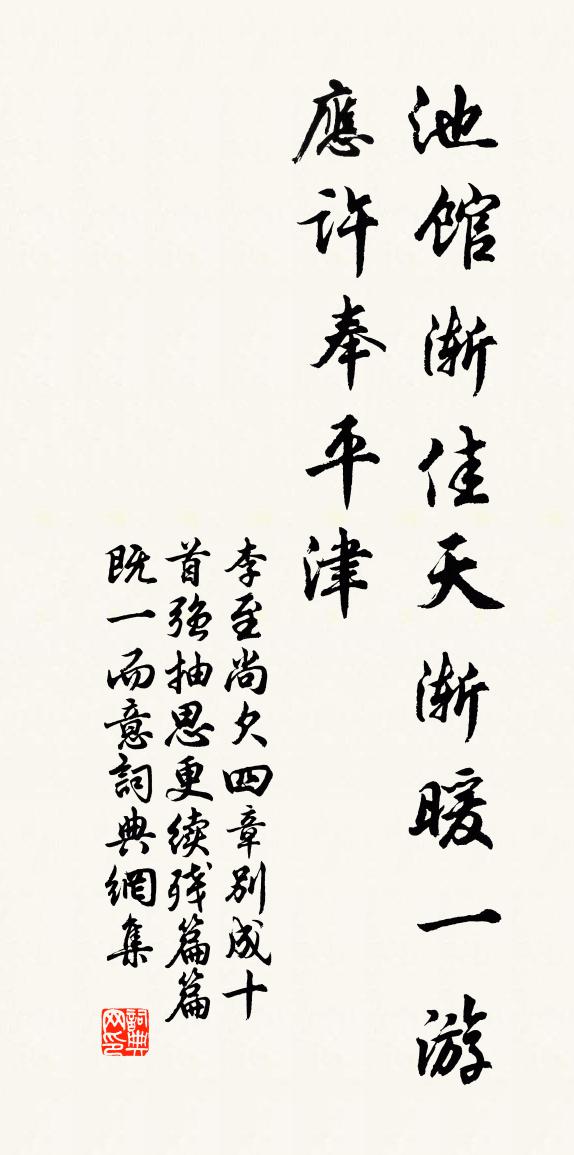 池馆渐佳天渐暖一游
應许奉平津
李至尚欠四章别成十
首强抽思更续残篇篇
既一而意詞典網集
詞典网印